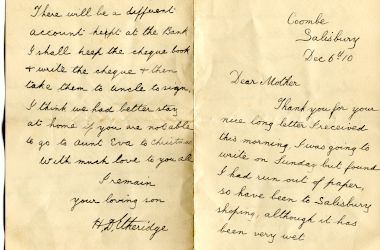 Coombe
Salisbury
Dec 6th 10
Dear Mother
Thank you for your
nice long letter I received
this morning. I was going to
write on Sunday but found
I had run out of paper,
so have been to Salisbury
shoping, although it has
been very wet
There will be a different
account keept at the Bank
I shall keep the cheque book
+ write the cheque + then
take them to uncle to sign,
I think we had better stay
at home if you are not able
to go to aunt Eva to Christmas
With much love to you all
I remain
your loving son
H. D. Etheridge